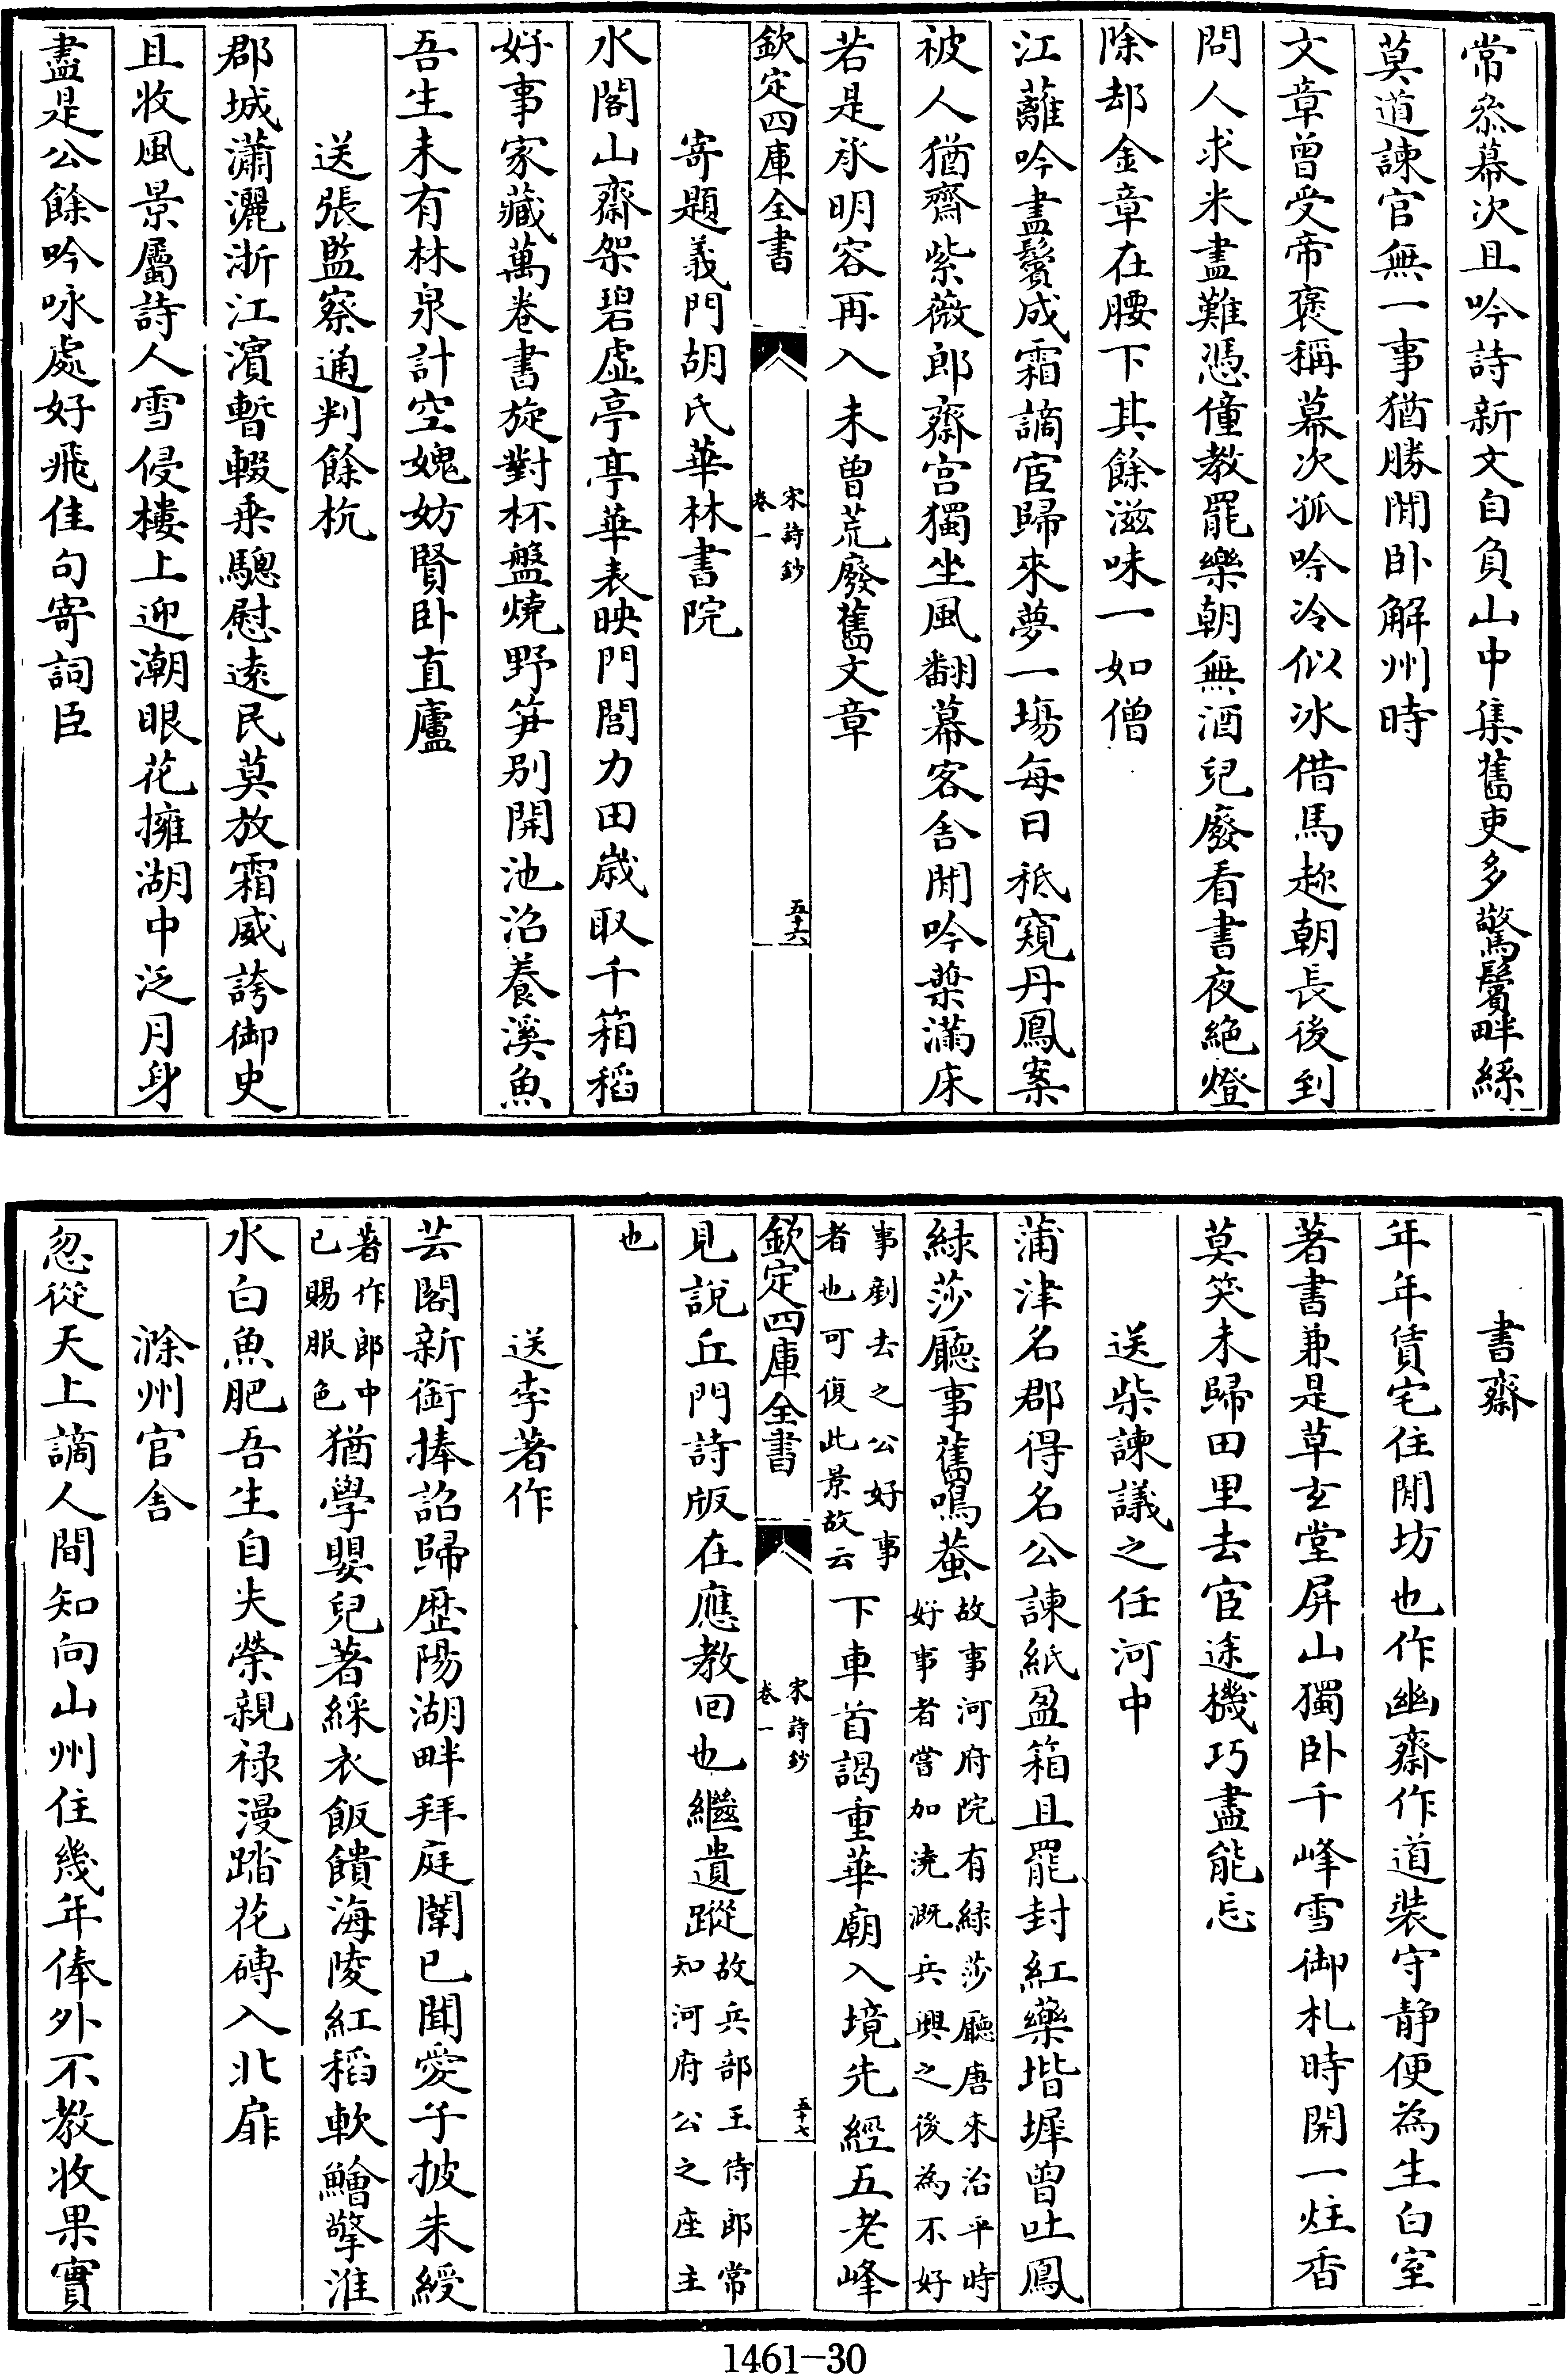 常叅幕次且吟詩新文自負山中集舊吏多驚鬢畔絲
莫道諫官無一事猶勝閒卧解州時
文章曾受帝褒稱幕次孤吟冷似冰借馬趂朝長後到
問人求米盡難憑僮教罷樂朝無酒兒廢看書夜絶燈
除却金章在腰下其餘滋味一如僧
江蘺吟盡鬢成霜謫宦歸來夢一塲每日秪窺丹鳳案
被人猶齋紫薇郎齋宫獨坐風翻幕客舍閒吟葉滿床
若是承明容再入未曾荒廢舊文章
欽定四庫全書
宋詩鈔
卷一
五十六
寄題義門胡氏華林書院
水閣山齋架碧虚亭亭華表映門閭力田歳取千箱稻
好事家藏萬卷書旋對杯盤燒野笋别開池沼養溪魚
吾生未有林泉計空媿妨賢卧直廬
送張監察通判餘杭
郡城瀟灑浙江濱暫輟乗驄慰逺民莫放霜威誇御史
且收風景屬詩人雪侵樓上迎潮眼花擁湖中泛月身
盡是公餘吟咏處好飛佳句寄詞臣
書齋
年年賃宅住閒坊也作幽齋作道装守静便為生白室
著書兼是草玄堂屏山獨卧千峰雪御札時開一炷香
莫笑未歸田里去宦途機巧盡能忘
送柴諫議之任河中
蒲津名郡得名公諫紙盈箱且罷封紅藥堦墀曾吐鳳
緑莎廳事舊鳴蛩故事河府院有緑莎廳唐来治平時好事者當加澆溉兵興之後為不好
事剷去之公好事者也可復此景故云下車首謁重華廟入境先經五老峰
欽定四庫全書
宋詩鈔
卷一
五十七
見說丘門詩版在應教回也繼遺蹤故兵部王侍郎常知河府公之座主
也
送李著作
芸閣新銜捧詔歸歴陽湖畔拜庭闈已聞愛子披朱綬
著作郎中已賜服色猶學嬰兒著綵衣飯饋海陵紅稻軟鱠擎淮
水白魚肥吾生自失榮親禄漫踏花磚入北扉
滁州官舍
忽從天上謫人間知向山州住幾年俸外不教收果實
1461-30